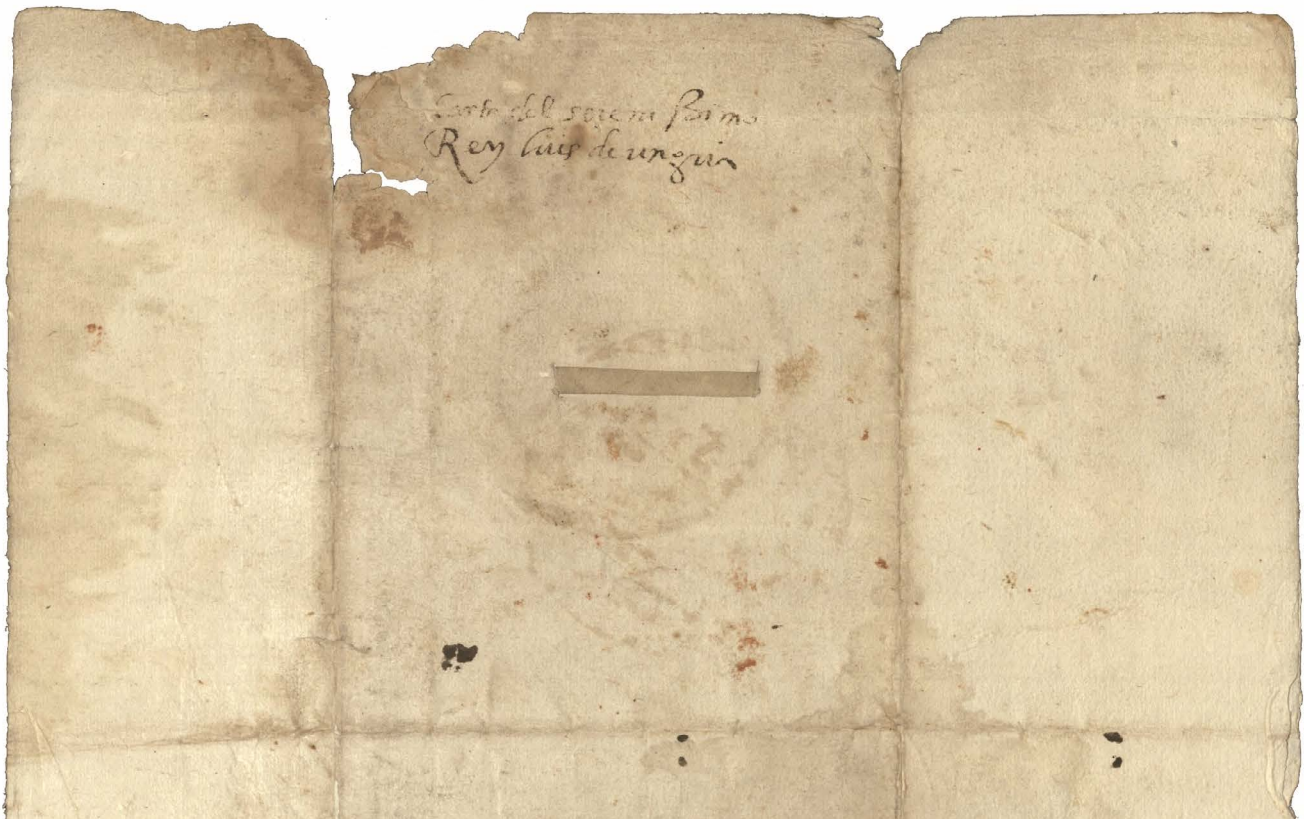 Carta del serenissimo
Rey luis de ungria